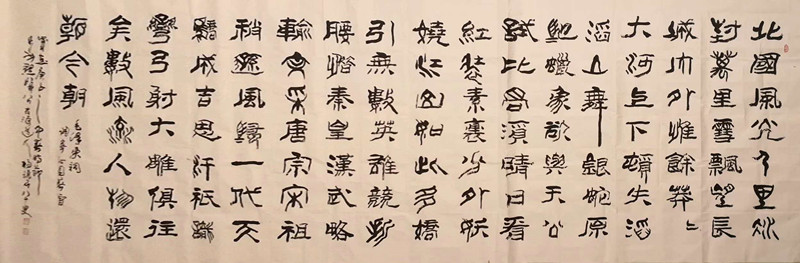 北國風光千里冰
封萬里雪飄望長
城內外惟餘莽〻
大河上下頓失滔
滔山舞銀蛇原
馳蠟象欲與天公
試比高須晴日看
紅裝素裹分外妖
嬈江山如此多嬌
引無數英雄競折
腰惜秦皇漢武略
輸文采唐宗宋祖
稍遜風騷一代天
驕成吉思汗祇識
彎弓射大雕俱往
矣數風流人物還
看今朝
毛澤東詞
沁園春雪